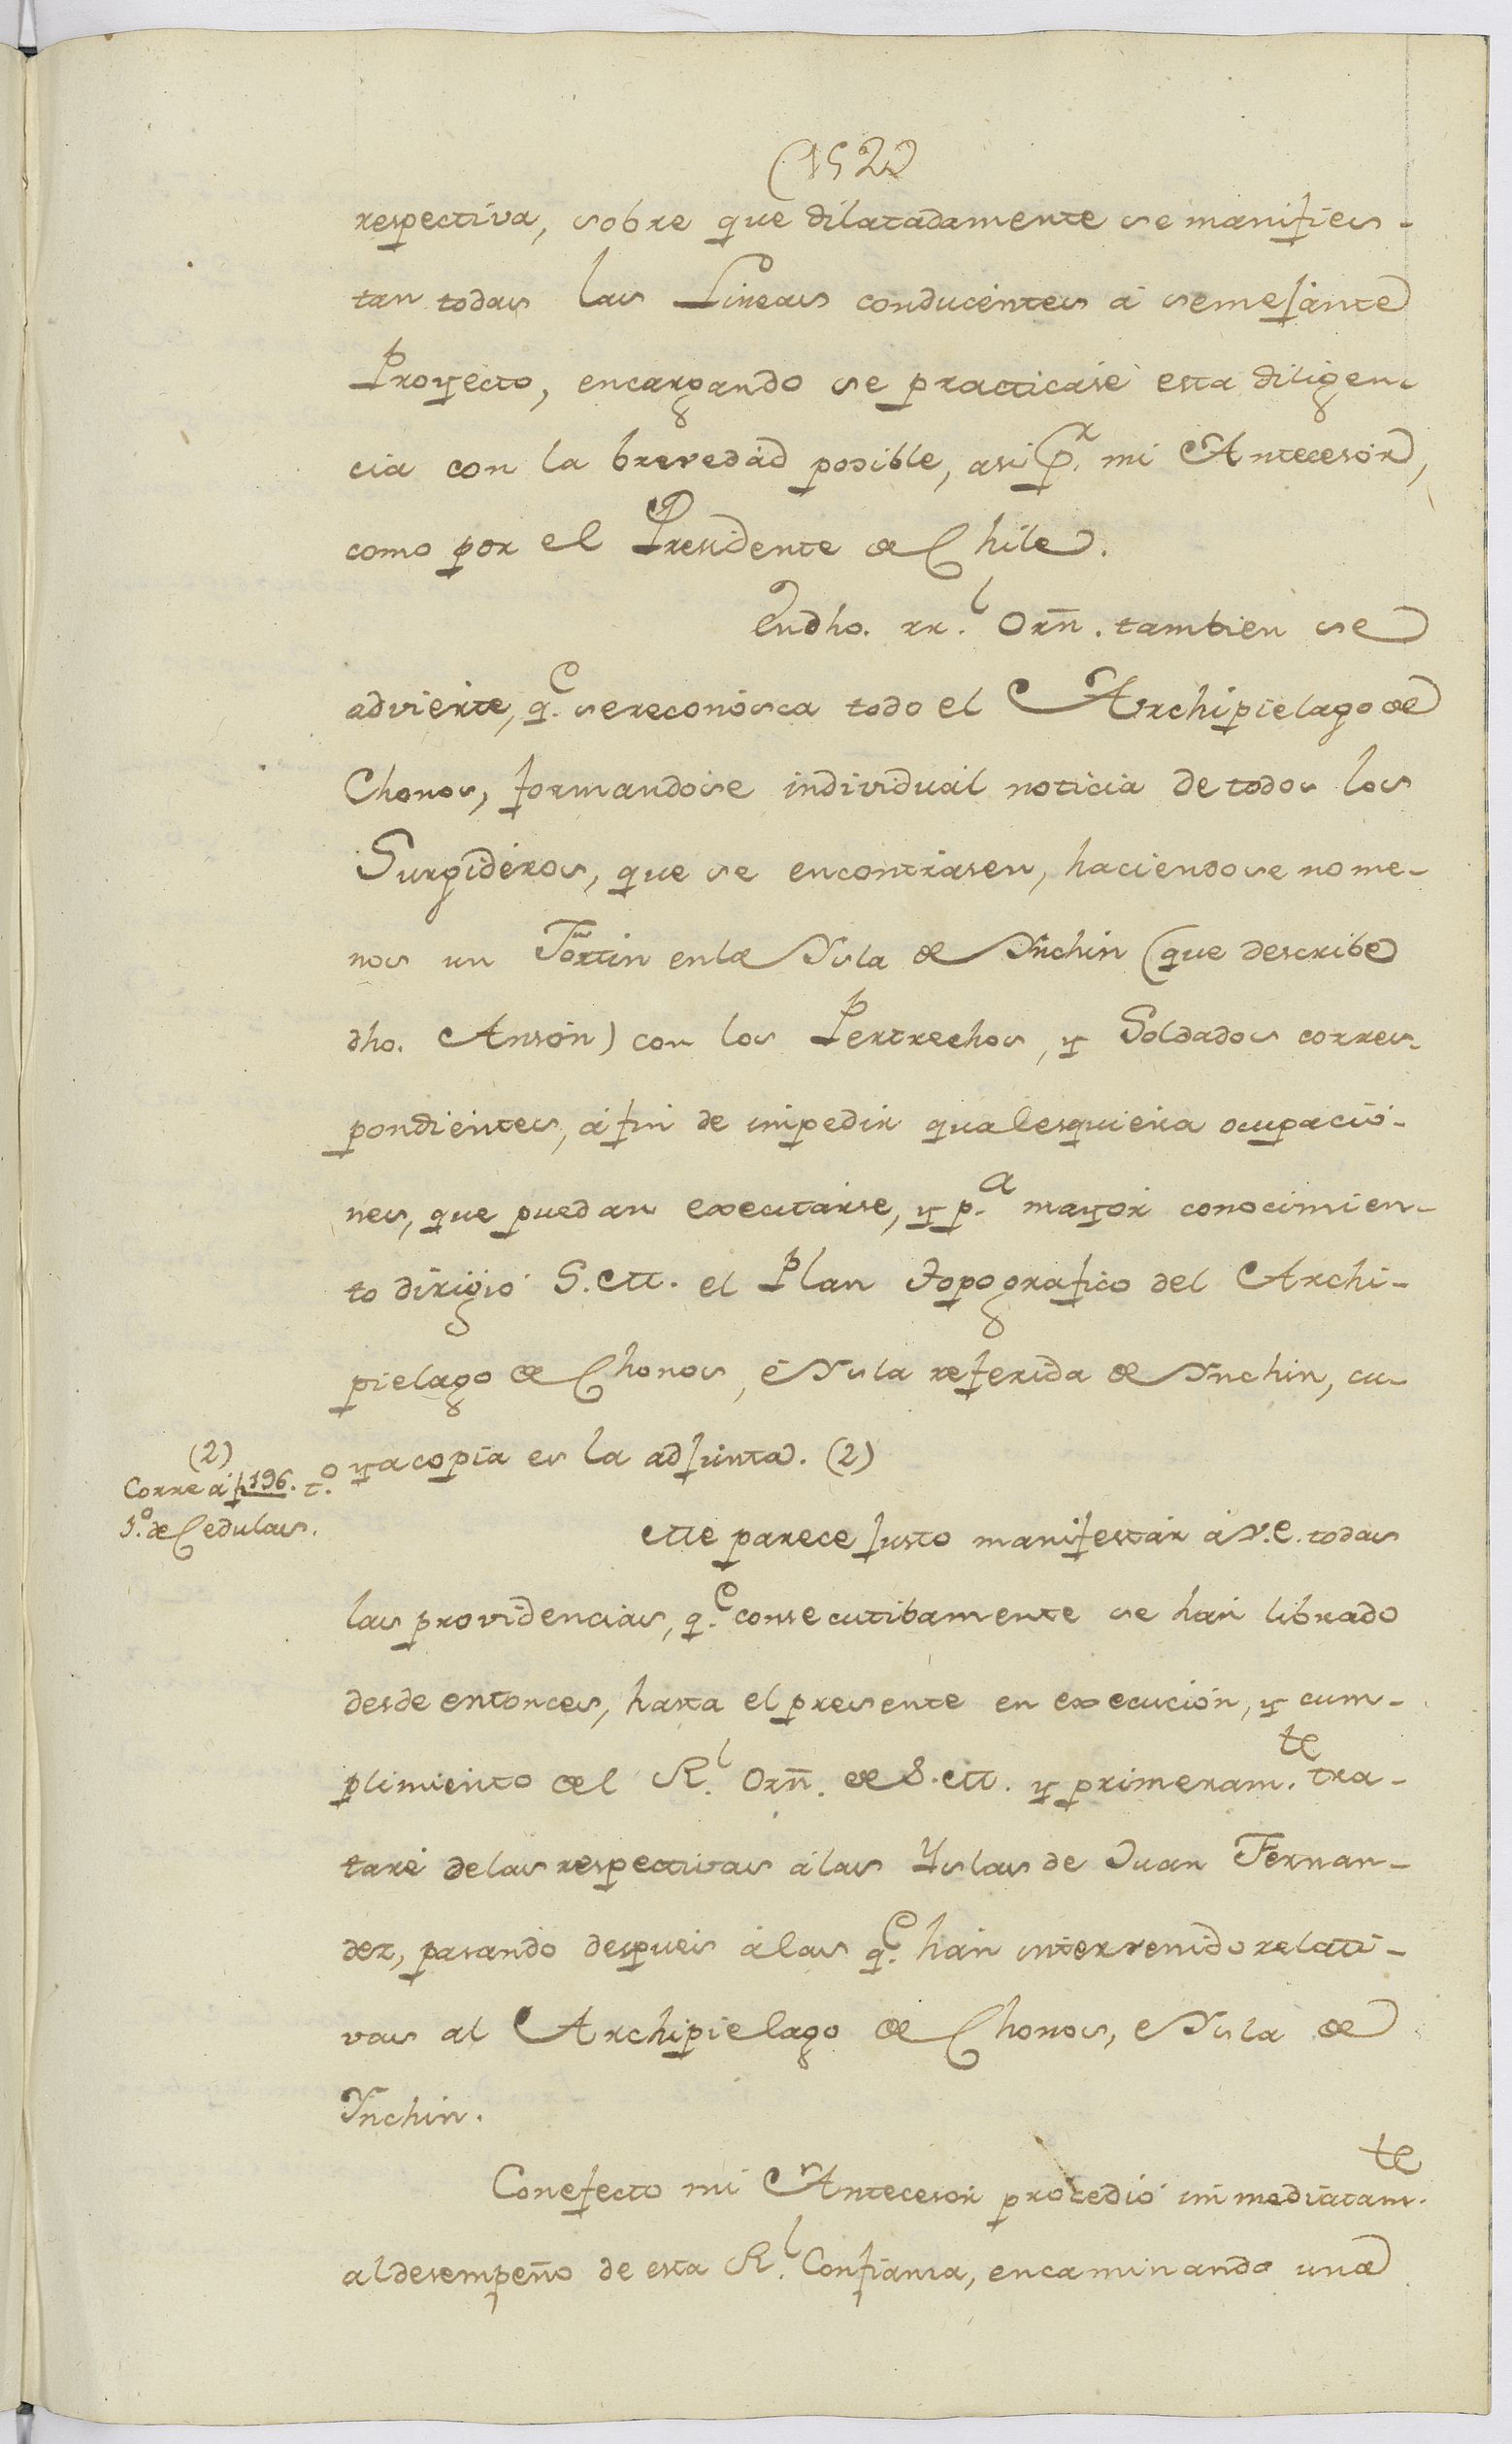 (152
respectiva, sobre que dilatadamente se manifies-
tan todas las Lineas conducentes á semejante
Proyecto, encargando se practicase esta diligen-
cia con la brevedad posible, asi p.r mi Antecesor,
como por el Presidente de Chile.
En dho. rr.l Orñ. tambien se
advierte, q.e se reconosca todo el Archipielago de
Chonos, formandose individual noticia de todos los
Surgideros, que se encontrasen, haciendose no me-
nos un Fortin en la Ysla de Ynchin (que describe
dho. Anson) con los Pertrechos, y Soldados corres-
pondientes, á fin de impedir qualesquiera ocupacio-
nes, que puedan executarse, y p.a mayor conocimien-
to dirigió S.M. el Plan Topografico del Archi-
pielago de Chonos, é Ysla referida de Ynchin, cu-
ya copia es la adjunta. (2)
(2)
Corre á f 196. t.o
1.o de Cedulas.
Me parece justo manifestar á V.E. todas
las providencias, q.e consecutibamente se han librado
desde entonces, hasta el presente en execución, y cum-
plimiento del R.l Orñ. de S.M. y primeram.te tra-
taré de las respectivas á las Yslas de Juan Fernan-
dez, pasando despues á las q.e han intervenido relati-
vas al Archipielago de Chonos, e Ysla de
Ynchin.
Con efecto mi Antecesor procedió inmediatam.te
al desempeño de esta R.l Confianza, encaminando una